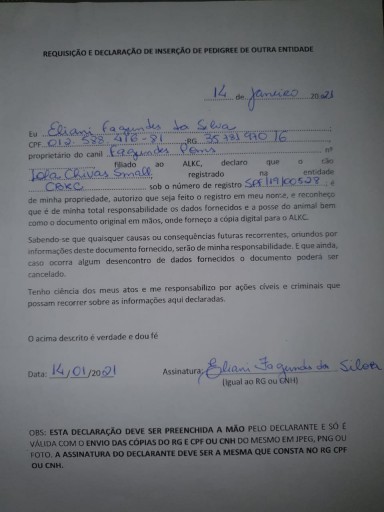 REQUISIÇÃO E DECLARAÇÃO DE INSERÇÃO DE PEDIGREE DE OUTRA ENTIDADE
14 de Janeiro 2021
Eu Eliani Fagundes da Silva
CPF 012 588 416-81 RG 35 771 970 16
proprietário do canil Fagundes Poms nº
filiado ao ALKC, declaro que o cão
Iola Chivas Small registrado na entidade
CBKC sob o número de registro SPF/19/00528, e
de minha propriedade, autorizo que seja feito o registro em meu nome, e reconheço
que é de minha total responsabilidade os dados fornecidos e a posse do animal bem
como o documento original em mãos, onde forneço a cópia digital para o ALKC.
Sabendo-se que quaisquer causas ou consequências futuras recorrentes, oriundos por
informações deste documento fornecido, serão de minha responsabilidade. E que ainda,
caso ocorra algum desencontro de dados fornecidos o documento poderá ser
cancelado.
Tenho ciência dos meus atos e me responsabilizo por ações civeis e criminais que
possam recorrer sobre as informações aqui declaradas.
O acima descrito é verdade e dou fé
Data: 14/01/2021 Assinatura: Eliani Fagundes da Silva
(Igual ao RG ou CNH)
OBS: ESTA DECLARAÇÃO DEVE SER PREENCHIDA A MÃO PELO DECLARANTE E SÓ É
VÁLIDA COM O ENVIO DAS CÓPIAS DO RG E CPF OU CNH DO MESMO EM JPEG, PNG OU
FOTO. A ASSINATURA DO DECLARANTE DEVE SER A MESMA QUE CONSTA NO RG CPF
OU CNH.